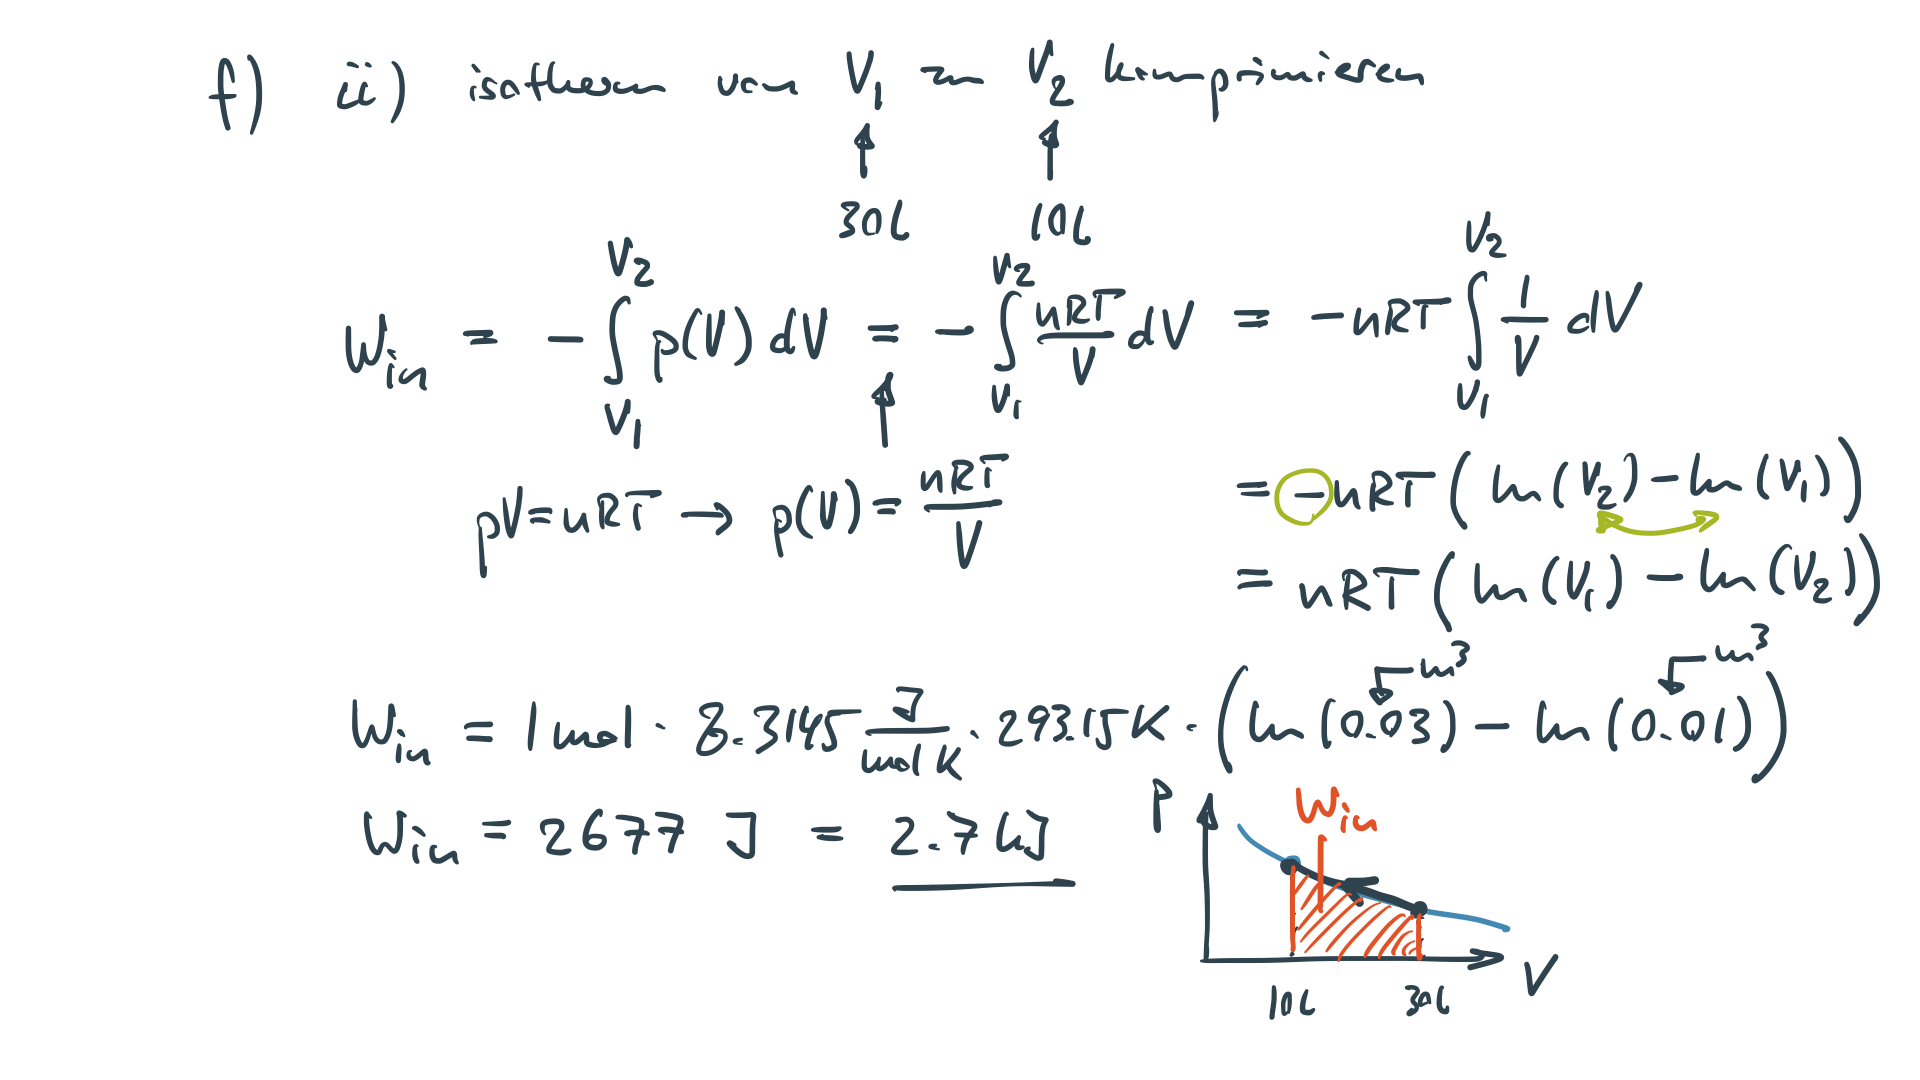 f) ii) isotherm von V₁ zu V₂ komprimieren
30L 10L
W_in = - ∫_{V₁}^{V₂} p(V) dV = - ∫_{V₁}^{V₂} nRT/V dV = - nRT ∫_{V₁}^{V₂} 1/V dV
pV = nRT → p(V) = nRT/V
= - nRT (ln(V₂) - ln(V₁))
= nRT (ln(V₁) - ln(V₂))
m³ m³
W_in = 1 mol · 8.3145 J/mol K · 293.15 K · (ln(0.03) - ln(0.01))
W_in = 2677 J = 2.7 kJ
P W_in
V
10L 30L